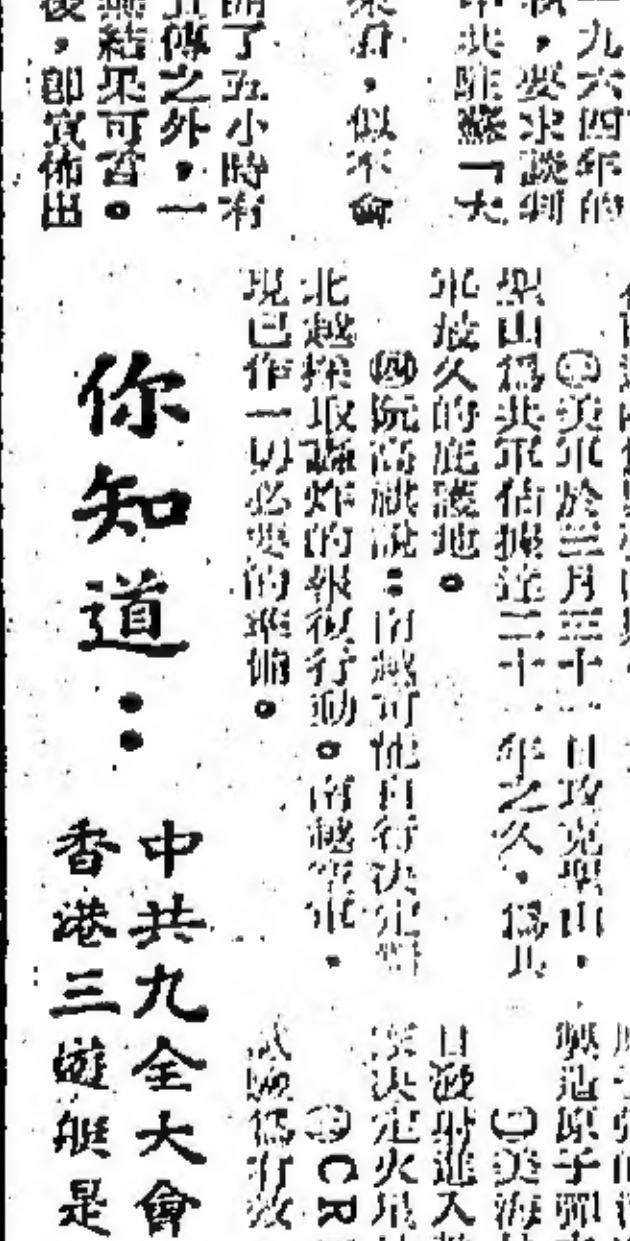 九六四年的
，要求談判
中共駐蘇「大
，似不會
開了五小時有
宣傳之外，一
無結果可言。
後，卽宣佈出
㊂美軍於三月三十一日攻克聖山，
聖山爲共軍佔據達二十一年之久，爲共
軍最久的庇護地。
㊃阮高祺說：南越可能自行決定對
北越採取轟炸的報復行動。南越空軍，
現已作一切必要的準備。
製造原子彈
㊁美海
日發射進入
決定火星
㊂CR
試驗爲有效
你知道：
中共九全大會
香港三遊艇是